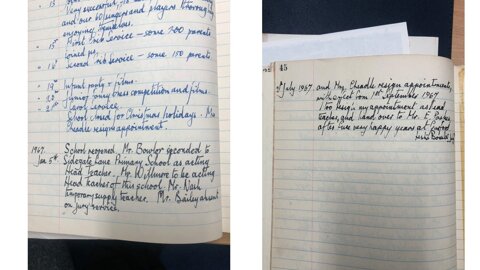 15
very successful, is
and our 60 singers and players thoroughly
enjoyed themselves.
15th First Crib service – some 200 parents
joined us.
16th Second Crib service – some 150 parents.
19th Infant party + films.
Junior party, dress competition and films.
Carol service.
School closed for Christmas holidays. Mrs
Cheadle resign appointment.
1967.
Jan 5th School reopened. Mr. Bowler seconded to
Sidegate Lane Primary School as acting
Head Teacher. Mr. Willmore to be acting
Head Teacher of this school. Mr. Nash
temporary supply teacher. Mr. Bailey absent
on jury service.
45
July 1967 and Mrs. Cheadle resign appointments,
with effect from 1st September 1967.
I too resign my appointment as Head
Teacher and hand over to Mr. E.
after five very happy years at